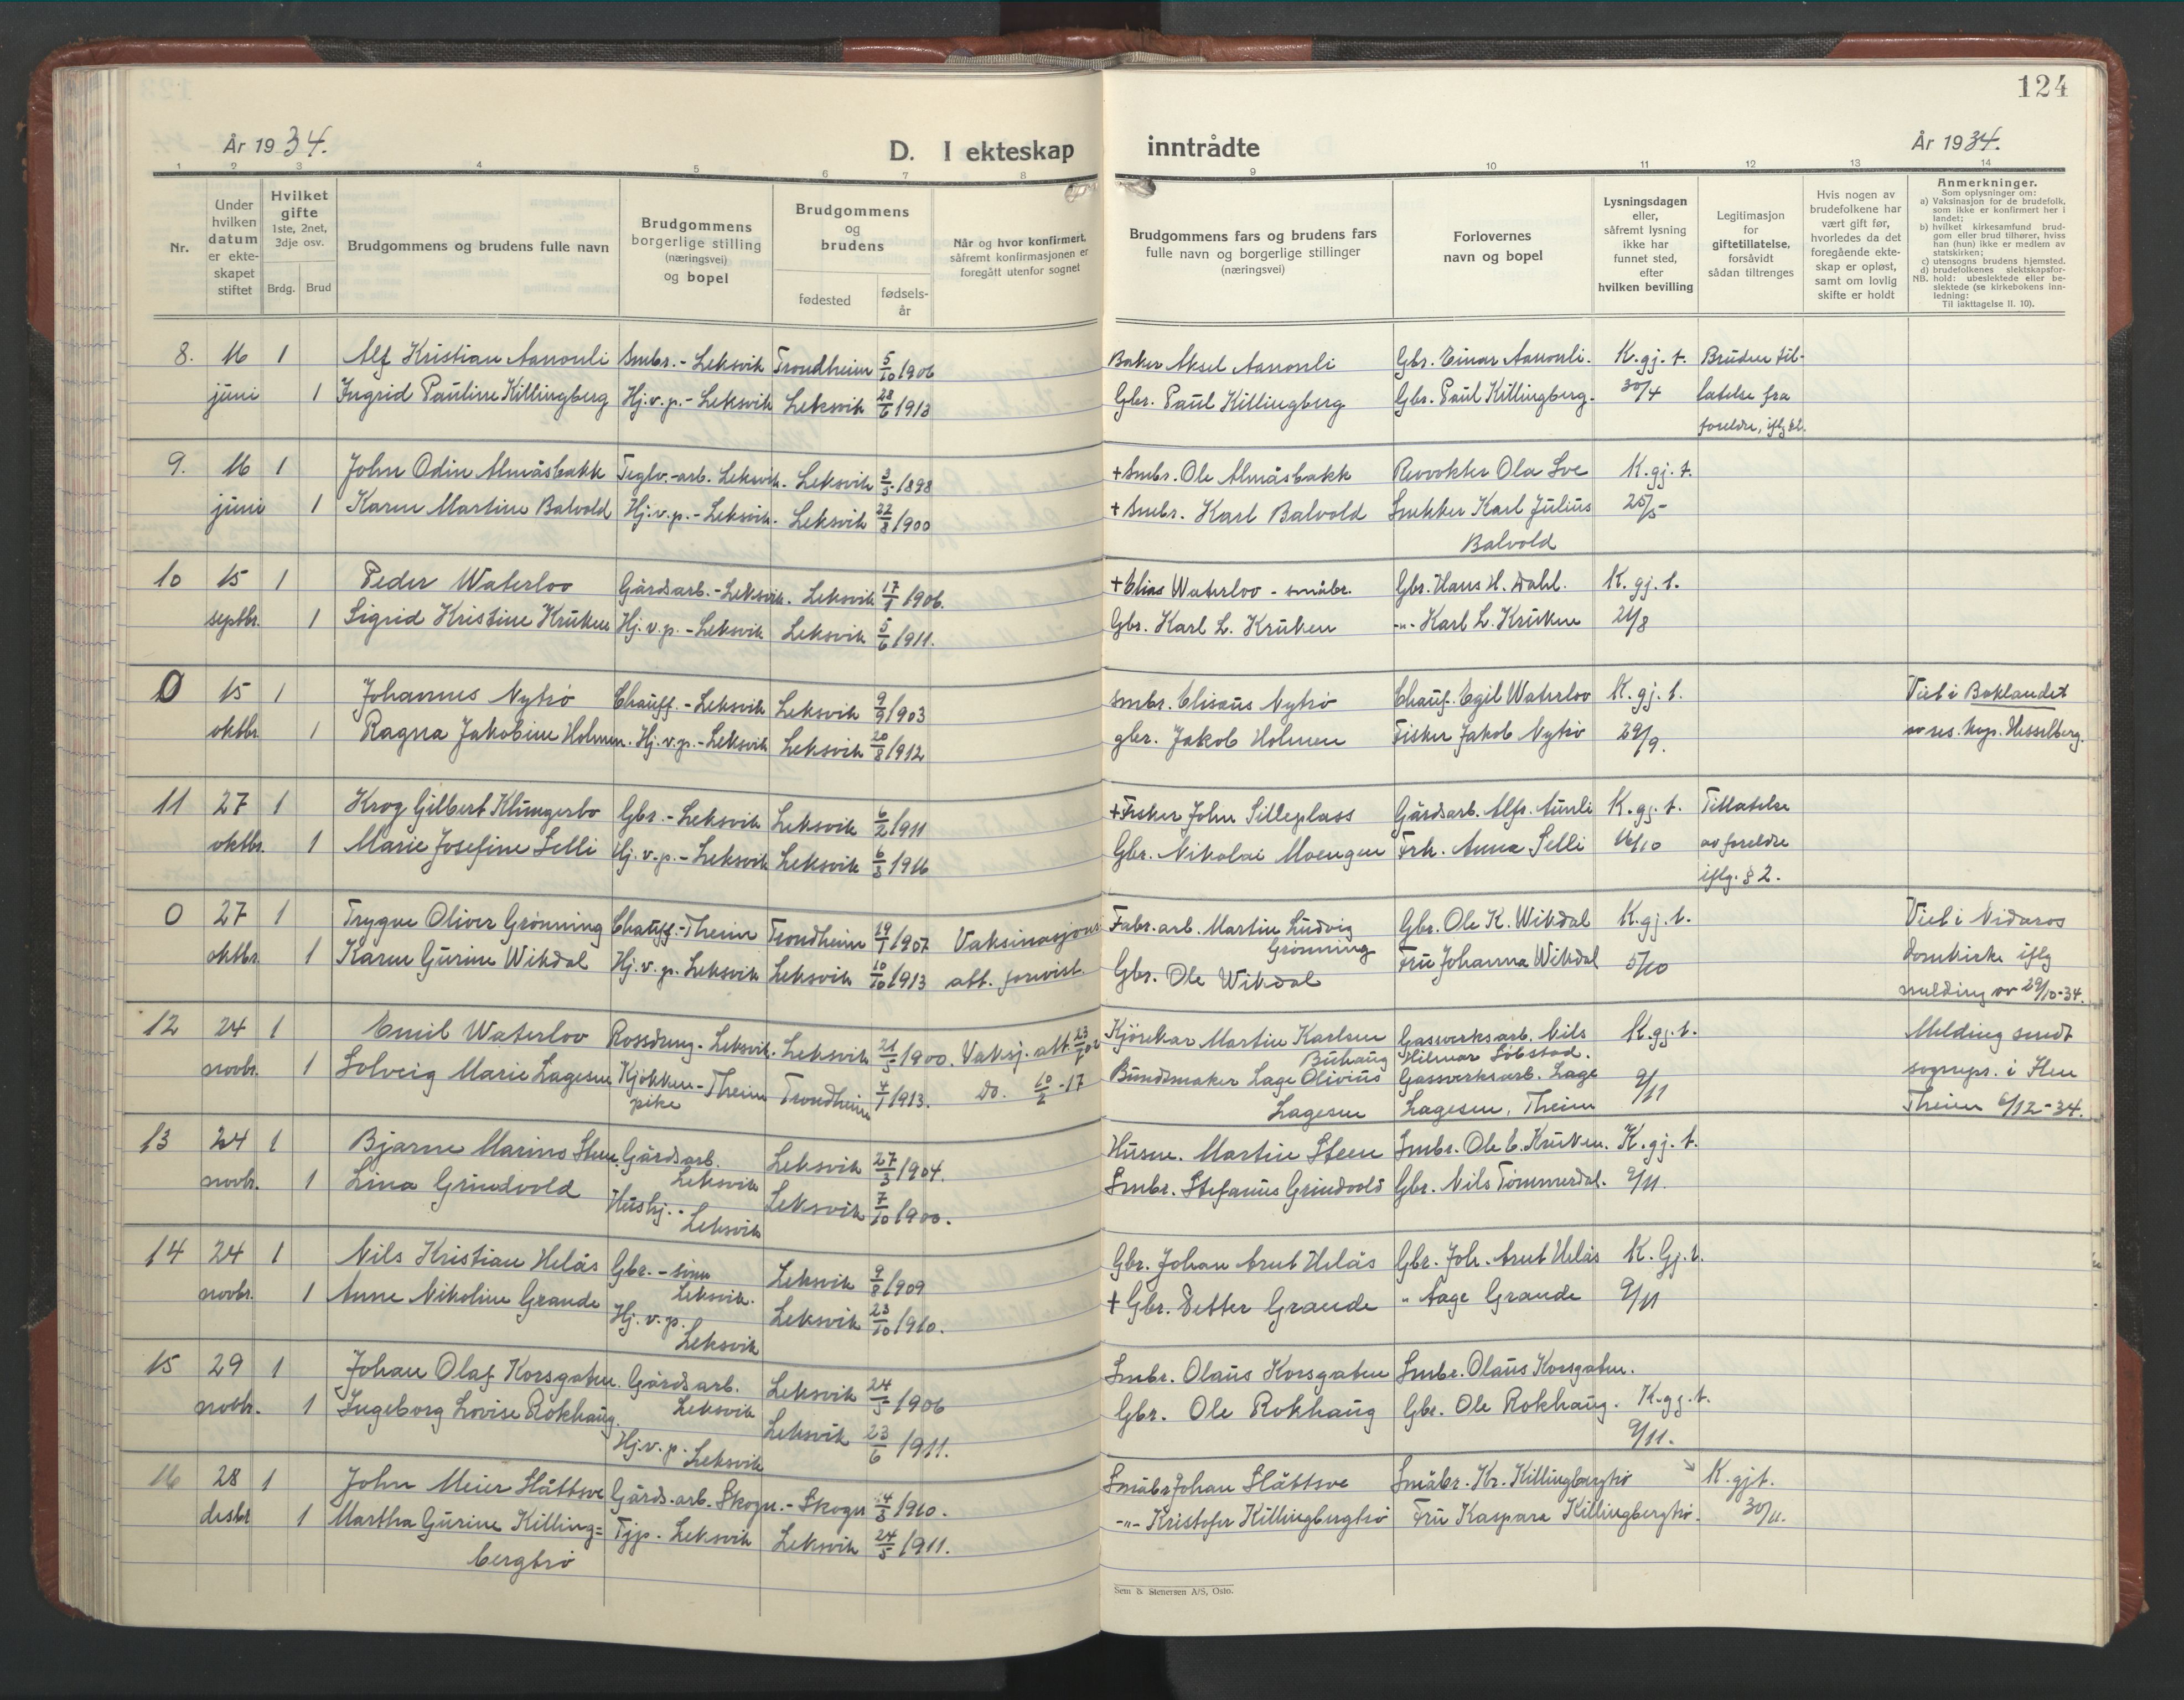 124
År 1934.
D. I ekteskap inntrådte
År 1934.
1 2 3 4 5 6 7 8 9 10 11 12 13 14
Nr.
Under hvilken datum er ekteskapet stiftet
Hvilket gifte 1ste, 2net, 3dje osv.
Brdg. Brud
Brudgommens og brudens fulle navn
Brudgommens borgerlige stilling (næringsvei) og bopel
Brudgommens og brudens
fødested
fødselsår
Når og hvor konfirmert, såfremt konfirmasjonen er foregått utenfor sognet
Brudgommens fars og brudens fars fulle navn og borgerlige stillinger (næringsvei)
Forlovernes navn og bopel
Lysningsdagen eller, såfremt lysning ikke har funnet sted, efter hvilken bevilling
Legitimasjon for giftetillatelse, forsåvidt sådan tiltrenges
Hvis nogen av brudefolkene har vært gift før, hvorledes da det foregående ekteskap er opløst, samt om lovlig skifte er holdt
Anmerkninger.
Som oplysninger om:
a) Vaksinasjon for de brudefolk, som ikke er konfirmert her i landet;
b) hvilket kirkesamfund brudgom eller brud tilhører, hviss han (hun) ikke er medlem av statskirken;
c) utensogns brudens hjemsted.
d) brudefolkenes slektskapsforhold: ubeslektede eller beslektede (se kirkebokens innledning:
NB. Til iakttagelse II. 10).
8. 16 1 Alf Kristian Aanonli Smbr.- Leksvik Trondheim 5/10 1906 Baker Aksel Aanonli Gbr. Einar Aanonli. K.gj.t. Bruden til-
juni 1 Ingrid Pauline Killingberg Hj.v.p.- Leksvik Leksvik 28/6 1913 Gbr. Paul Killingberg Gbr. Paul Killingberg. 30/4 latelse fra
foreldre, iflg §2.
9. 16 1 John Odin Almåsbakk Teglv.-arb. Leksvik. Leksvik 3/5 1898 + Smbr. Ole Almåsbakk Revokter Ola Sve K.gj.t.
juni 1 Karen Martine Balvold Hj.v.p.- Leksvik. Leksvik 22/8 1900 + Smbr. Karl Balvold Snekker Karl Julius 25/5
Balvold
10 15 1 Peder Waterloo Gårdsarb.- Leksvik. Leksvik 17/1 1906. + Elias Waterloo - småbr. Gbr. Hans H. Dahl. K.gj.t.
septbr. 1 Sigrid Kristine Kruken Hj.v.p.- Leksvik Leksvik 5/6 1911. Gbr. Karl L. Kruken -"- Karl L. Kruken 21/8
0 15 1 Johannes Nytrø Chauff.- Leksvik Leksvik 9/9 1903 Smbr. Elisæus Nytrø Chauf. Egil Waterloo K.gj.t. Viet i Baklandet
oktbr. 1 Ragna Jakobine Holmen. Hj.v.p.- Leksvik Leksvik 20/8 1912 gbr. Jakob Holmen Fisker Jakob Nytrø 29/9. av res. kap. Hesselberg.
11 27 1 Krog Gilbert Klungerbo Gbr.- Leksvik Leksvik 6/2 1911 + Fisker John Silleplass Gårdsarb. Alfr. Aunli K.gj.t. Tillatelse
oktbr. 1 Marie Josefine Selli Hj.v.p.- Leksvik Leksvik 6/3 1916 Gbr. Nikolai Moengen Frk. Anna Selli 16/10 av foreldre
iflg. § 2.
0 27 1 Trygve Oliver Grønning Chauff.-Theim Trondheim 19/1 1907 Vaksinasjons Fabr.arb. Martin Ludvig Gbr. Ole K. Wikdal K.gj.t. Viet i Nidaros
Grønning
oktbr. 1 Karen Gurine Wikdal Hj.v.p. Leksvik Leksvik 10/10 1913 att. forevist. Gbr. Ole Wikdal Fru Johanna Wikdal 5/10 domkirke iflg
melding av 29/10-34.
12 24 1 Emil Waterloo Rossdreng- Leksvik. Leksvik 21/5 1900. Vaksj. att. Kjørekar Martin Karlsen Gassverksarb. Nils K.gj.t. Melding sendt
Buhaug Hilmar Løbstad.
novbr. 1 Solveig Marie Lagesen Kjøkken- Theim Trondheim 4/1 1913. Do. 10/2-17 Bundtmaker Lage Olivius Gassverksarb. Lage 9/11 sogneps. i Ilen
pike Lagesen Lagesen, Theim Theim 6/12-34.
13 24 1 Bjarne Marino Steen. Gårdsarb. Leksvik 27/3 1904. Husm. Martin Steen Smbr. Ole E. Kruken. K.gj.t.
Leksvik
novbr. 1 Lina Grindvold Hushj.. Leksvik 7/10 1900. Smbr. Stefanus Grindvold Gbr. Nils Tømmerdal. 9/11.
Leksvik
14 24 1 Nils Kristian Helås Gbr.- sønn Leksvik 9/8 1909 Gbr. Johan Arnt Helås Gbr. Joh. Arnt Helås K.Gj.t.
Leksvik.
novbr. 1 Anne Nikoline Grande Hj.v.p. Leksvik 23/10 1910. + Gbr. Petter Grande " Aage Grande 9/11
Leksvik
15 29 1 Johan Olaf Korsgaten. Gårdsarb. Leksvik 24/5 1906 Smbr. Olaus Korsgaten Smbr. Olaus Korsgaten.
Leksvik
novbr. 1 Ingeborg Lovise Rokhaug. Leksvik 23/6 1911. Gbr. Ole Rokhaug Gbr. Ole Rokhaug. K.gj.t.
Hj.v.p. Leksvik 9/11.
16 28 1 John Meier Slåttsve Gårds.arb. Skogn.- Skogn 14/3 1910. Småbr Johan Slåttsve Småbr. Kr. Killingbergtrø K.gj.t.
desbr 1 Martha Gurine Killing= Tjp.- Leksvik Leksvik 24/5 1911. -"- Kristofer Killingbergtrø Fru Kaspara Killingbergtrø. 30/11.
bergtrø
Sem & Stenersen A/S, Oslo.